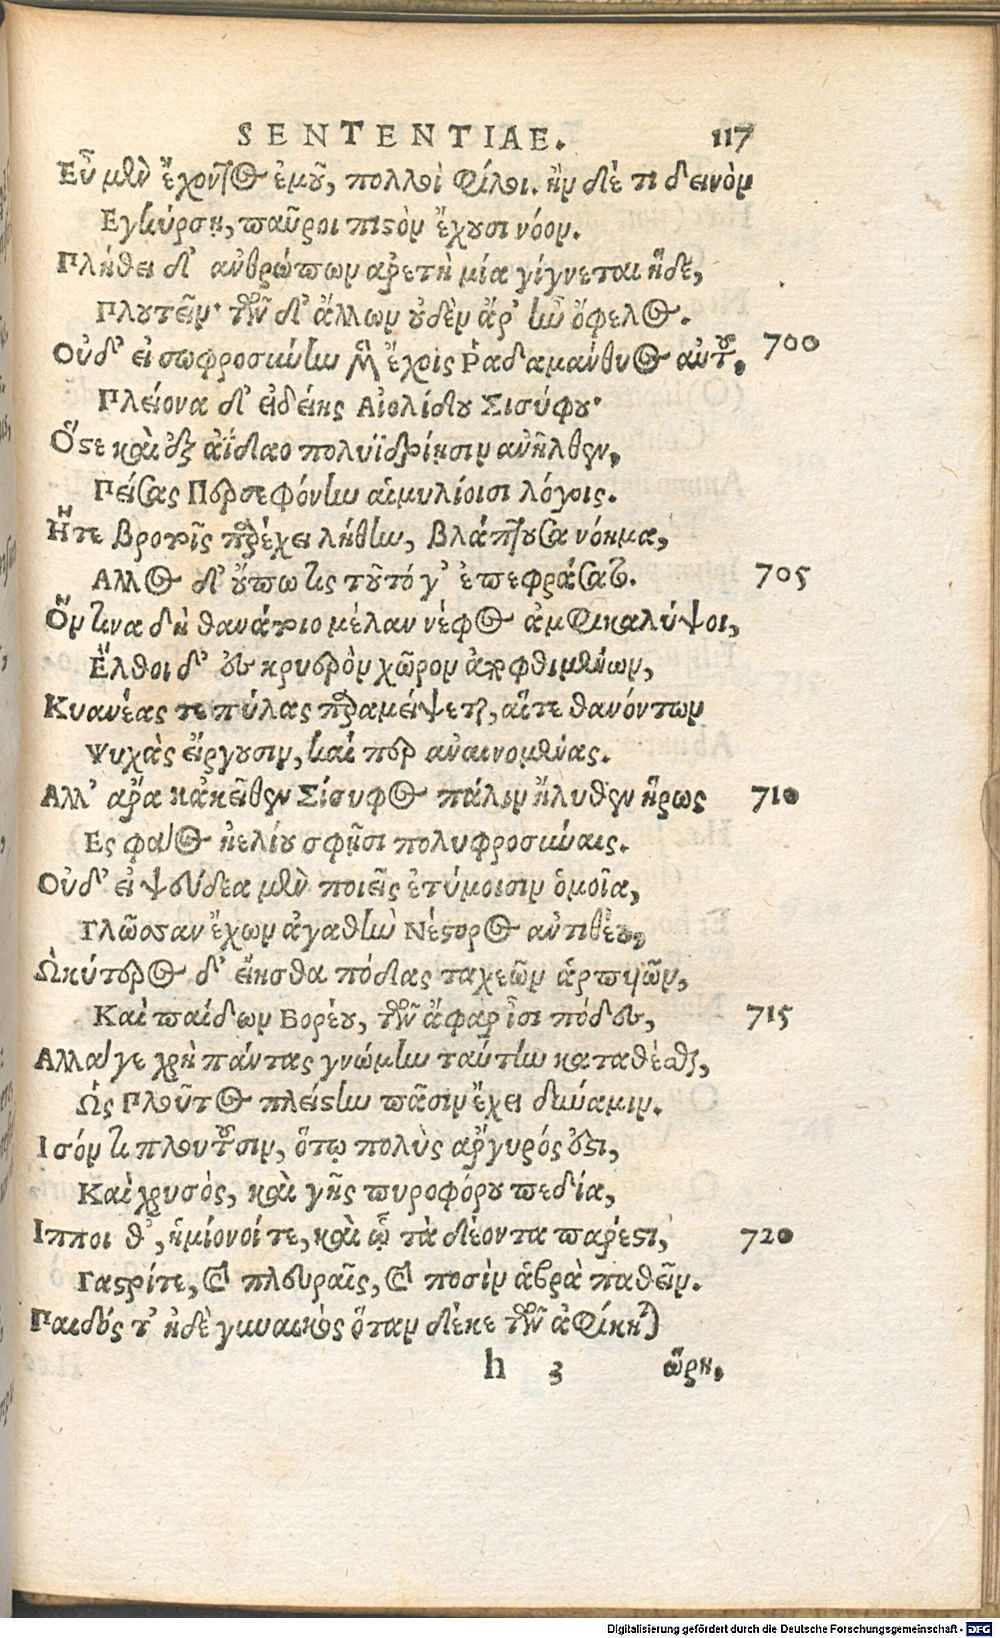 SENTENTIAE. 117
Εὖ μὲν ἔχοντος ἐμοῦ, πολλοὶ φίλοι. ἢν δέ τι δεινὸν
Εγκύρσῃ, παῦροι πιστὸν ἔχουσι νόον.
Πλήθει δ' ἀνθρώπων ἀρετὴ μία γίγνεται ἥδε,
Πλουτεῖν· τῶν δ' ἄλλων οὐδὲν ἄρ' ἦν ὄφελος.
Οὐδ' εἰ σωφροσύνην μὲν ἔχοις Ῥαδαμάνθυος αὐτοῦ, 700
Πλείονα δ' εἰδείης Αἰολίδου Σισύφου·
Ὅστε καὶ ἐξ ἀΐδαο πολυϊδρίῃσιν ἀνῆλθεν,
Πείσας Περσεφόνην αἱμυλίοισι λόγοις.
Ἥτε βροτοῖς παρέχει λήθην, βλάπτουσα νόημα,
Αλλος δ' οὔπω τις τοῦτό γ' ἐπεφράσατο. 705
Ὅν τινα δὴ θανάτοιο μέλαν νέφος ἀμφικαλύψοι,
Ἔλθοι δ' ἐς κρυερὸν χῶρον ἀποφθιμένων,
Κυανέας τε πύλας παραμείψεται, αἵτε θανόντων
Ψυχὰς εἴργουσιν, καί περ ἀναινομένας.
Αλλ' ἄρα κἀκεῖθεν Σίσυφος πάλιν ἤλυθεν ἥρως 710
Ες φάος ἠελίου σφῇσι πολυφροσύναις.
Οὐδ' εἰ ψεύδεα μὲν ποιεῖς ἐτύμοισιν ὁμοῖα,
Γλῶσσαν ἔχων ἀγαθὴν Νέστορος ἀντιθέου,
Ὠκύτερος δ' εἴησθα πόδας ταχεῶν ἁρπυῶν,
Καὶ παίδων Βορέου, τῶν ἄφαρ εἶσι πόδες, 715
Αλλά γε χρὴ πάντας γνώμην ταύτην καταθέσθαι,
Ὡς Πλοῦτος πλείστην πᾶσιν ἔχει δύναμιν.
Ισόν τι πλουτοῦσιν, ὅτῳ πολὺς ἄργυρός ἐστι,
Καὶ χρυσὸς, καὶ γῆς πυροφόρου πεδία,
Ιπποι θ', ἡμίονοί τε, καὶ ᾧ τὰ δέοντα πάρεστι, 720
Γαστρίτε, καὶ πλευραῖς, καὶ ποσὶν ἁβρὰ παθεῖν.
Παιδός τ' ἠδὲ γυναικὸς ὅταν δέκε τῶν ἀφίκηται
h 3 ὥρη,
Digitalisierung gefördert durch die Deutsche Forschungsgemeinschaft - DFG